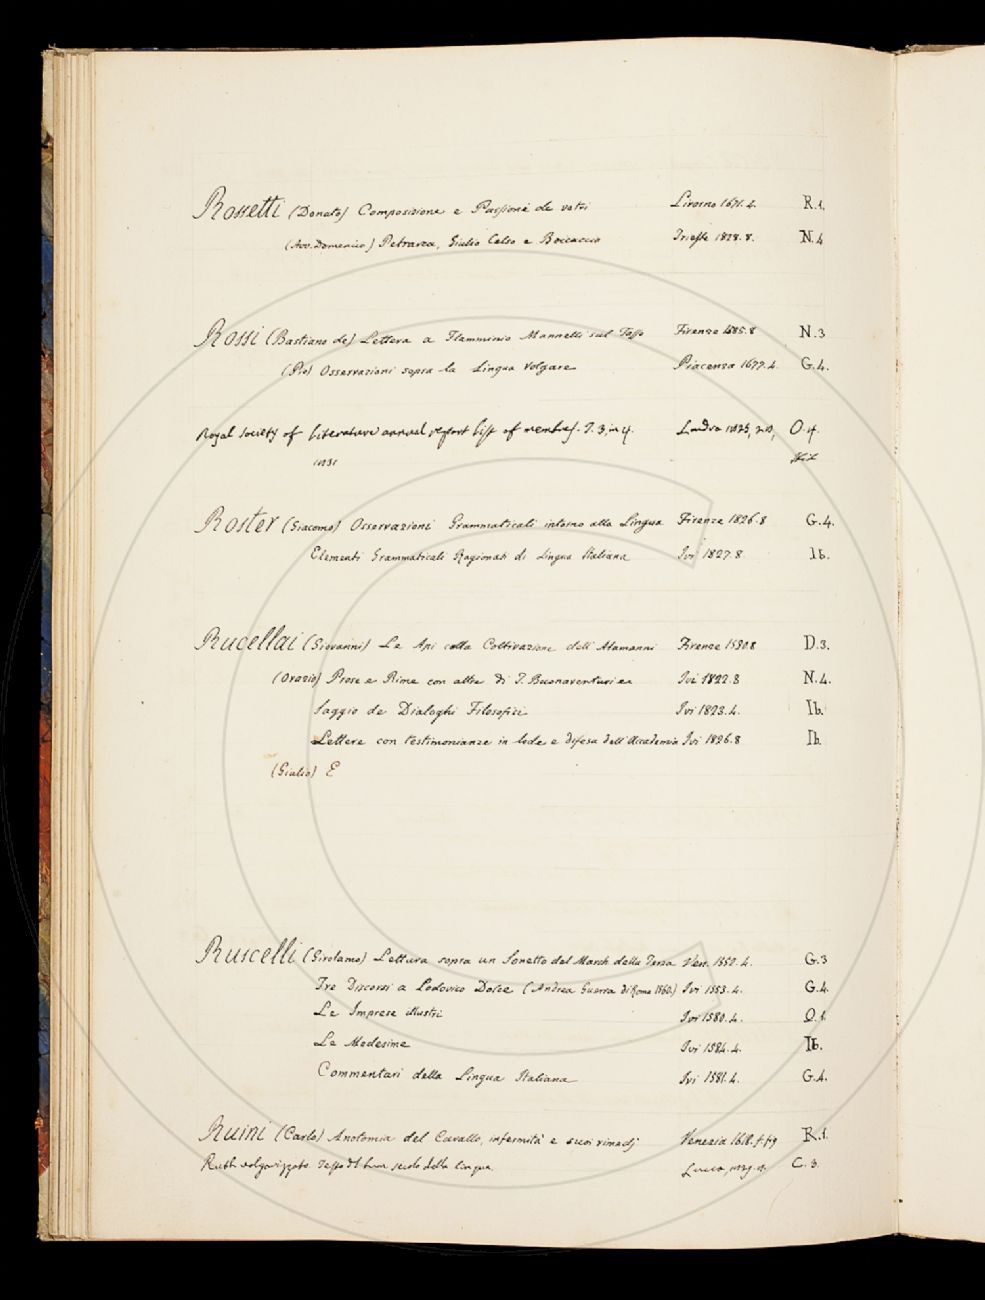 Rossetti (Donato) Composizione e Passione de vetri Livorno 1671. 4. R. 1.
(Avv. Domenico) Petrarca, Giulio Celso e Boccaccio Trieste 1828. 8. N. 4
Rossi (Bastiano de) Lettera a Flamminio Mannelli sul Tasso Firenze 1585. 8 N. 3
(Pio) Osservazioni sopra la Lingua Volgare Piacenza 1677. 4. G. 4.
Royal Society of literature annual report list of T. 3, in 4. Londra 1825, O. 4.
1831
Roster (Giacomo) Osservazioni Grammaticali intorno alla Lingua Firenze 1826. 8 G. 4.
Elementi Grammaticali Ragionati di Lingua Italiana Ivi 1827. 8. Ib.
Rucellai (Giovanni) Le Api colla Coltivazione dell' Alamanni Firenze 1590 8 D. 3.
(Orazio) Prose e Rime con altre di T. Buonaventuri ec Ivi 1822. 8 N. 4.
Saggio de Dialoghi Filosofici Ivi 1823. 4. Ib.
Lettere con testimonianze in lode e difesa dell' Accademia Ivi 1826. 8 Ib.
(Giulio) E
Ruscelli (Girolamo) Lettura sopra un Sonetto del March della Terza Ven. 1552. 4. G. 3
Tre Discorsi a Lodovico Dolce (Andrea Guerra di Roma 1560.) Ivi 1553. 4. G. 4.
Le Imprese illustri Ivi 1580. 4. Q. 1.
Le Medesime Ivi 1584. 4. Ib.
Commentari della Lingua Italiana Ivi 1581. 4. G. 4.
Ruini (Carlo) Anotomia del Cavallo, infermità e suoi rimedj Venezia 1618. f. fig R. 1.
Ruth volgarizzato Testo del buon secolo della lingua. Lucca, C. 3.